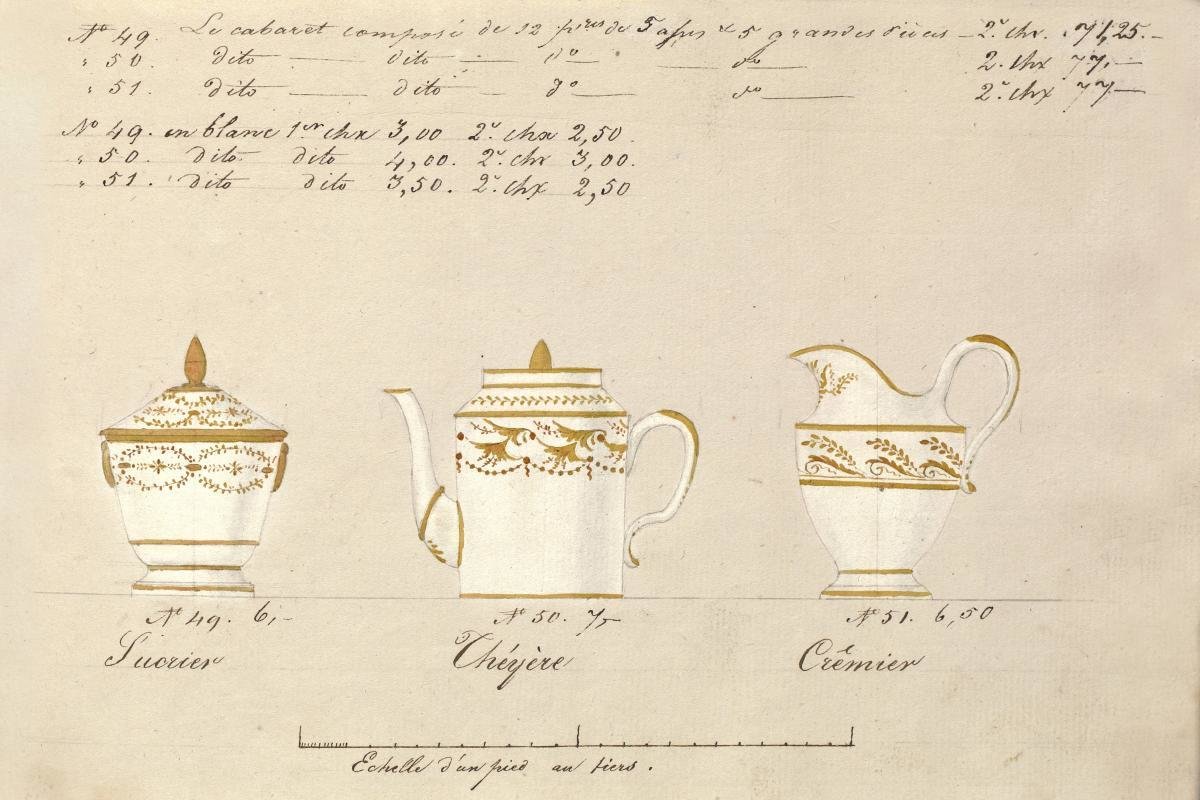 No 49. Le cabaret composé de 12 pires de Tasses & 5 grandes pièces — 2.e chx. 71,25.—
" 50. Dito — dito — do — do — 2. chx 77,—
" 51. Dito — dito — do — do — 2.e chx 77—
No 49. en blanc 1er chx 3,00 2.e chx 2,50.
" 50. dito dito 4,00. 2.e chx 3,00.
" 51. dito dito 3,50. 2.e chx 2,50
No 49. 6,— No 50. 7,— No 51. 6,50
Sucrier Théyère Crêmier
Echelle d'un pied au tiers.